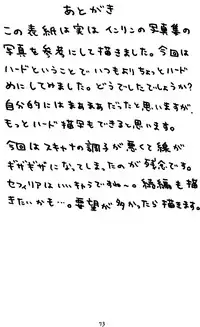 あとがき
この表紙は実はインリンの写真集の
写真を参考にして描きました。今回は
ハードということでいつもよりちょっとハード
めにしてみました。どうでしたでしょうか?
自分的にはまぁまぁだったと思いますが、
もっとハード描写もできると思います。
今回はスキャナの調子が悪くて線が
ギザギザになってしまったのが残念です。
セフィリアはいいキャラですね～。続編も描
きたいかも…。要望が多かったら描きます。
73